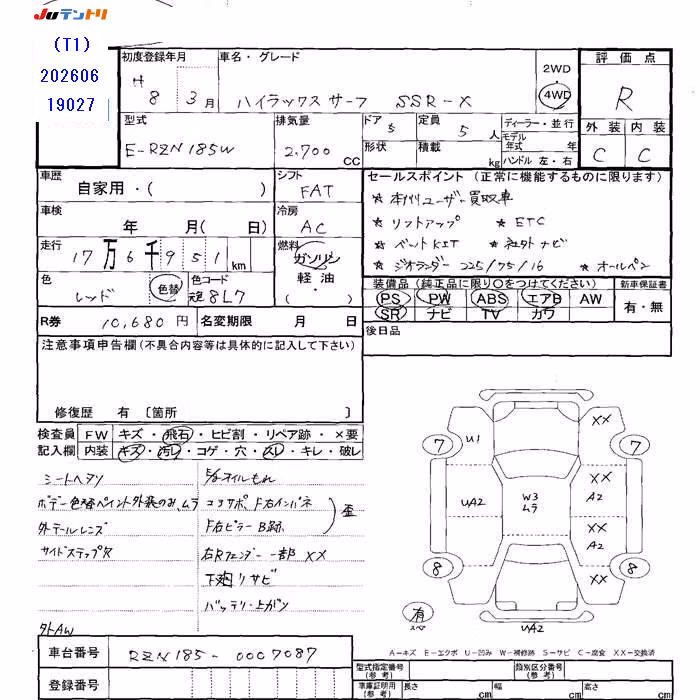 JUテントリ
(T1)
202606
19027
初度登録年月
H 8 3月
車名・グレード
ハイラックスサーフ SSR-X
2WD
4WD
評価点
R
外装 内装
C C
型式
E-RZN185W
排気量
2,700 CC
ドア 5
形状
定員 5人
積載 kg
ディーラー・並行
モデル年式 年
ハンドル 左・右
車歴
自家用・( )
シフト
FAT
車検
年 月( 日)
冷房
AC
走行
17万6千951km
燃料
ガソリン
軽油
・( )
色
レッド 色替
色コード
元色8L7
R券 10,680円 名変期限 月 日
セールスポイント (正常に機能するものに限ります)
★本州ユーザー買取車
★リフトアップ ★ETC
★ベットKIT ★社外ナビ
★ジオランダー 225/75/16 ★オールペン
装備品 (純正品に限り○をつけてください)
新車保証書
PS PW ABS エアB AW
SR ナビ TV カワ
有・無
後日品
注意事項申告欄(不具合内容等は具体的に記入して下さい)
修復歴 有 〔箇所 〕
検査員記入欄
FW キズ・飛石・ヒビ割・リペア跡・×要
内装 キズ・汚レ・コゲ・穴・スレ・キレ・破レ
シートヘタリ
ボデー色替ペイント外装のみ、ムラ
外テールレンズ
サイドステップR
外AW
オイルもれ
コアサポ、F右インパネ
F右ピラーB跡
歪
右Rフェンダー一部XX
下廻りサビ
バッテリー上がり
7 U1 XX 7
UA2 W3 ムラ XX A2
XX A2
8 XX 8
有 スペア
UA2
A-キズ E-エクボ U-凹み W-補修跡 S-サビ C-腐食 XX-交換済
車台番号 RZN185-0007087
登録番号
型式指定番号(参考)
類別区分番号(参考)
車庫証明用(参考) 長さ cm 幅 cm 高さ cm